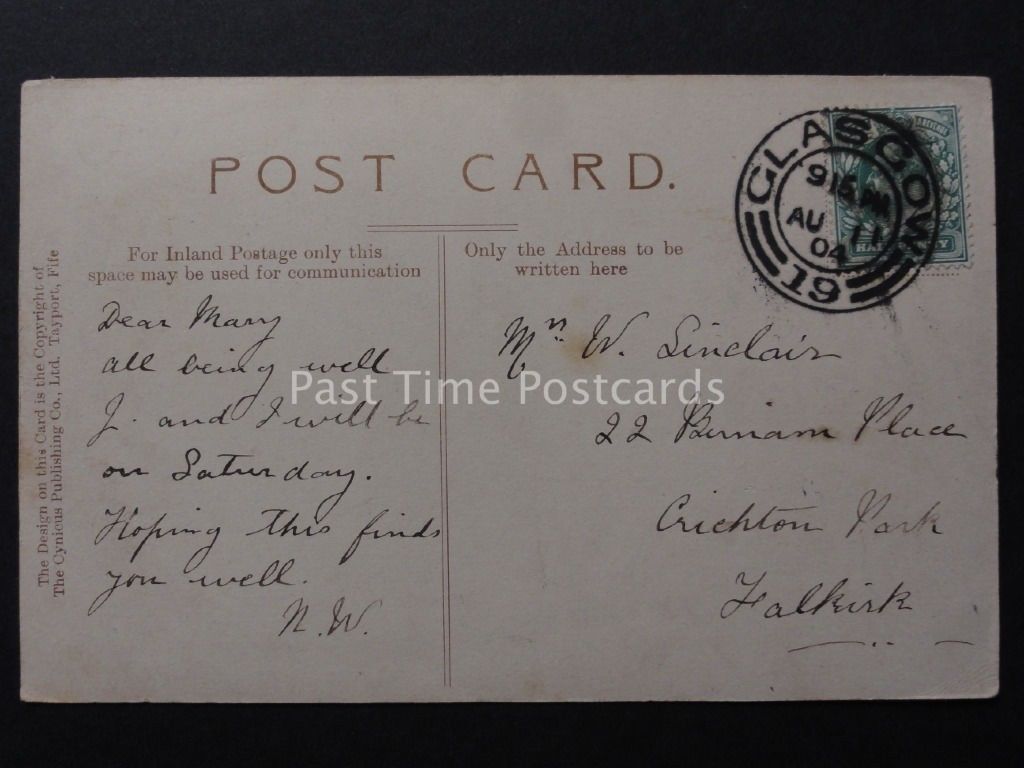 POST CARD.
GLASGOW
9 15 PM
AU 11
04
19
For Inland Postage only this
space may be used for communication
Only the Address to be
written here
The Design on this Card is the Copyright of
The Cynicus Publishing Co., Ltd. Tayport, Fife
Dear Mary
all being well
J. and I will be
on Saturday.
Hoping this finds
you well.
N.W.
Mrs. W. Sinclair
22 Birnam Place
Crichton Park
Falkirk
Past Time Postcards